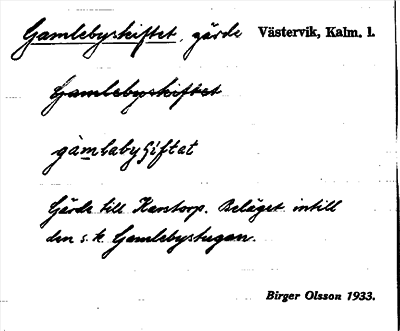 Gamlebyskiftet, gärde Västervik, Kalm. l.
Gamlebyskiftet
gàmlabyʃiftat
Gärde till Karstorp. Beläget intill
den s.k. Gamlebystugan.
Birger Olsson 1933.